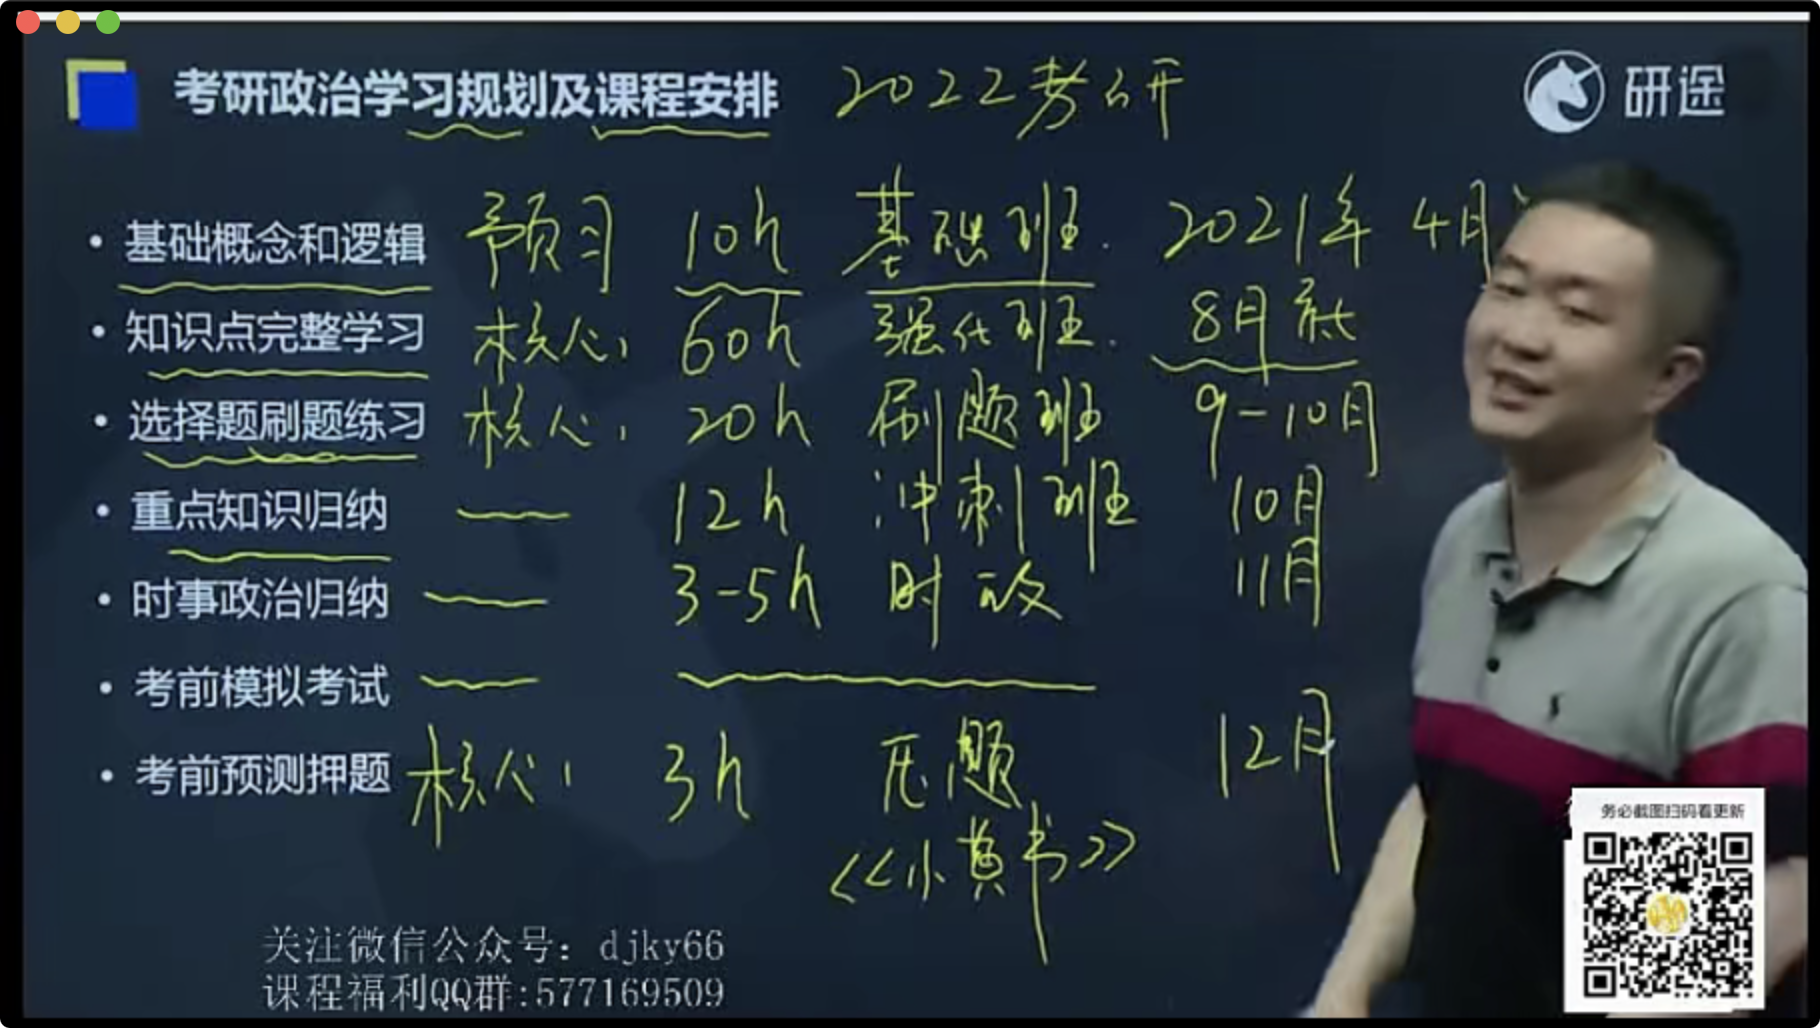 考研政治学习规划及课程安排 2022考研 研途
• 基础概念和逻辑 预习 10h 基础班. 2021年 4月
• 知识点完整学习 核心, 60h 强化班. 8月前
• 选择题刷题练习 核心, 20h 刷题班 9-10月
• 重点知识归纳 —— 12h 冲刺班 10月
• 时事政治归纳 —— 3-5h 时政 11月
• 考前模拟考试 ——
• 考前预测押题 核心, 3h 压题 12月
<<小黄书>>
务必截图扫码看更新
关注微信公众号：djky66
课程福利QQ群:577169509